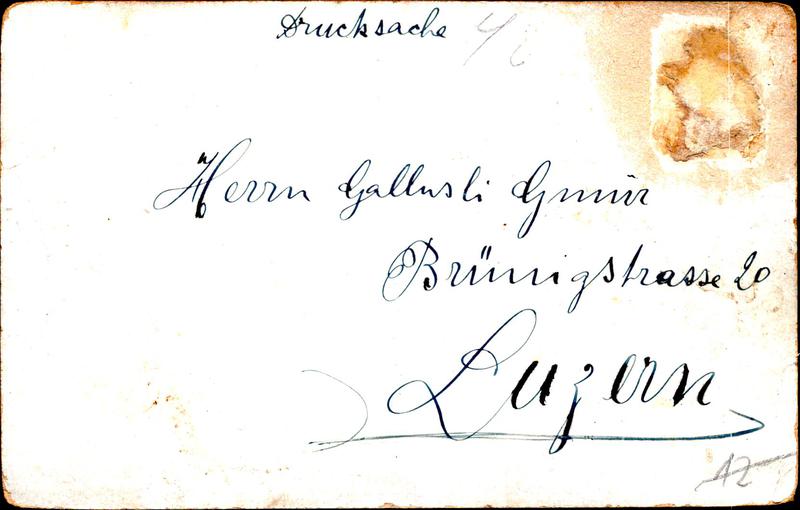 Drucksache
Herrn Gallusli Gmür
Brünigstrasse 20
Luzern
12